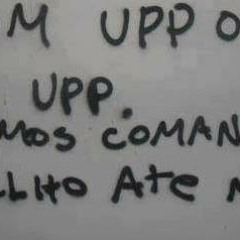 M UPP O
UPP.
MOS COMAN
LHO ATE